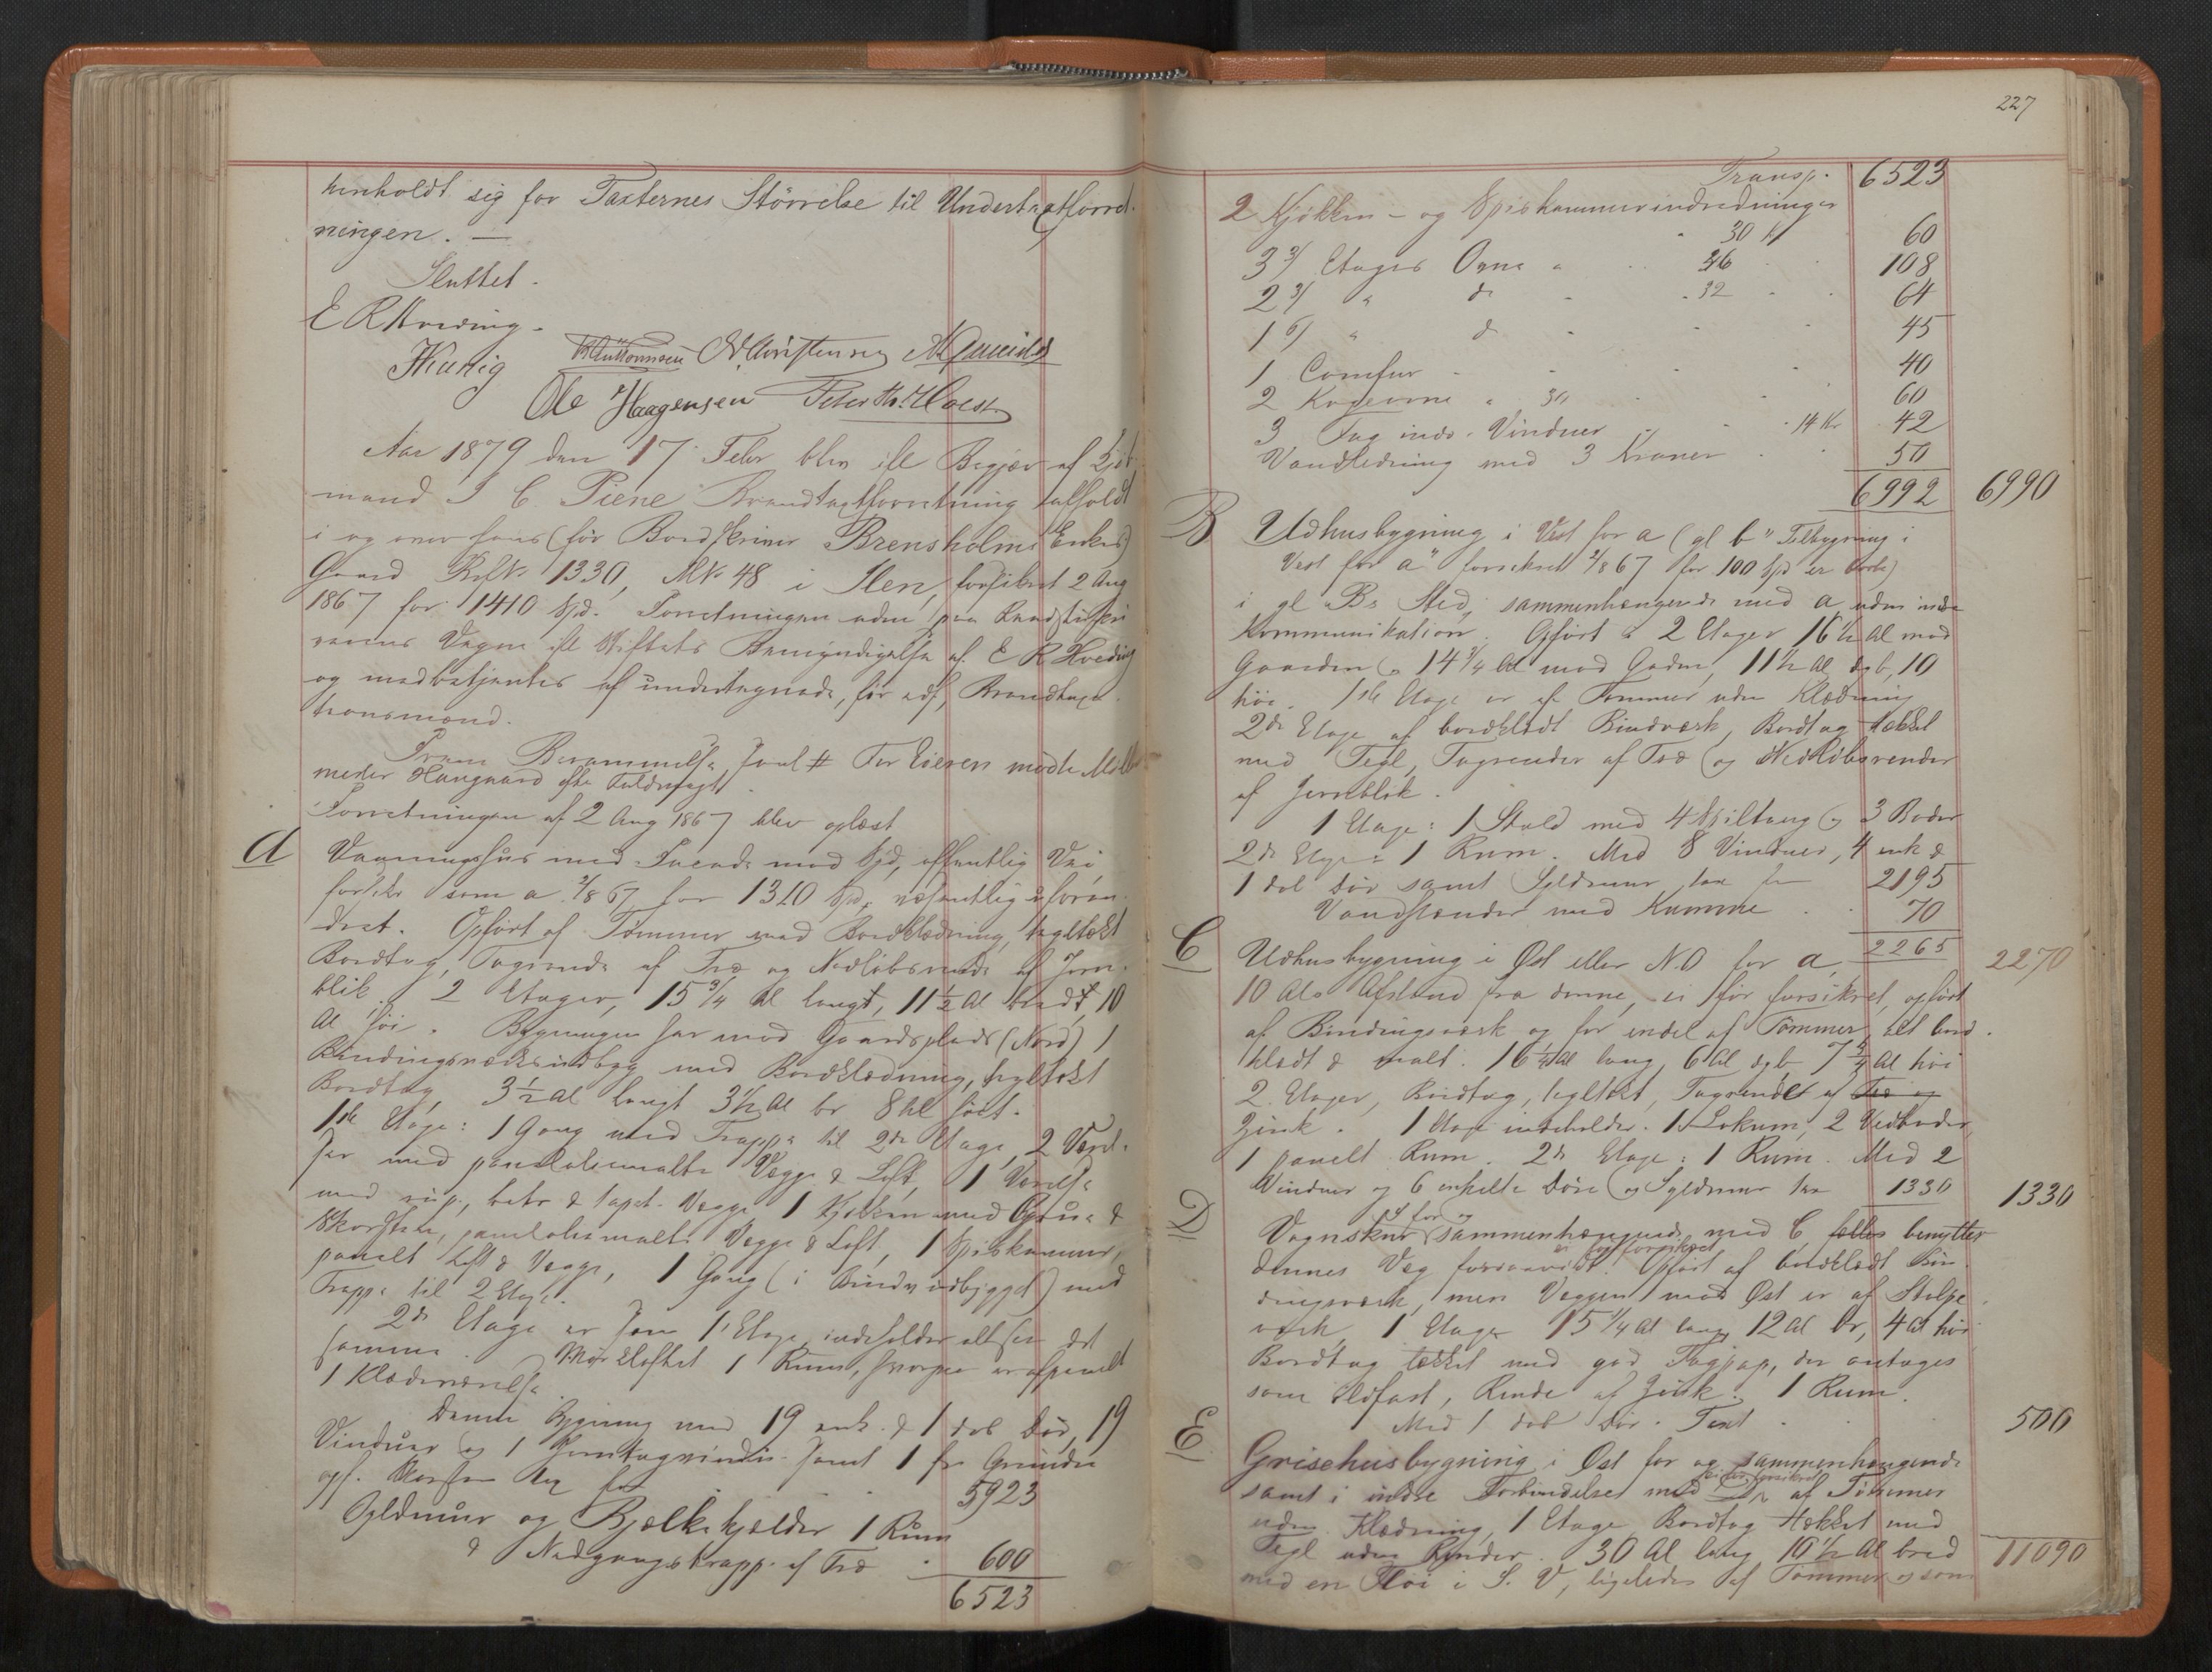 henholdt sig for Taxternes Störrelse til Undertaxtforret-
ningen. —
Sluttet.
E R Hveding.
Kunig Christensen
Ole Haagensen Peter
Aar 1879 den 17 Febr blev ifl Begjær af Kjöb-
mand I C. Piene Brandtaxtforretning afholdt
i og over hans (för Bord skriver Brensholms Enkes)
Gaard RulNo 1330, MNo 48 i Ilen, forsikret 2 Aug
1867 for 1410 Spd. Forretningen uden paa
Vegne ifl Stiftets Bemyndigelse af E R Hveding
og medbetjentes af undertegnede, för edf. Brandtaxa-
tionsmænd.
Frem Berammelse For Eieren mödte
Haugaard efter Fuldmagt.
Forretningen af 2 Aug 1867 blev oplæst
A Vaaningshus med Facade mod Syd, offentlig Vei
forsikr som a 2/8 67 for 1310 Spd, væsentlig uforan-
dret. Opfört af Tömmer med Bordklædning, tegltækt
Bordtag, Tagrende af Træ og Nedlöbsrende af Jern-
blik. 2 Etager, 15 3/4 Al langt, 11 1/2 Al bredt, 10
Al höi. Bygningen har mod Gaardsplads (Nord) 1
Bindingsværksindbyg med Bordklædning, tegltækt
Bordtag, 3 1/2 Al langt 3 1/2 Al br 8 Al höit.
1ste Etage: 1 Gang med Trappe til 2den Etage, 2 Værel-
ser med paneloliemalte Vægge & Loft, 1 Værelse
med betr & tapet. Vægge 1 Kjökken med Grue &
Skorsten, paneloliemalte Vægge & Loft, 1 Spiskammer,
panelt Loft & Vægge, 1 Gang (i udbygget) med
Trappe til 2 Etage.
2den Etage er som 1' Etage indeholder altsaa det
samme. Mörkloftet 1 Rum, hvorpaa er afpanelt
1 Klædeværelse.
Denne Bygning med 19 enk. & 1 dob Dör, 19
Vinduer og 1 samt 1 fra Grunden
opf. Skorsten for 5923
Syldmur og Bjælkekjælder 1 Rum
& Nedgangstrappe af Træ 600
6523
227
Transp. 6523
2 Kjökken- og Spiskammerindredninger
30 kr 60
3 3/ Etages Ovne a 36 108
2 3/ " do 32 64
1 6/ " do 45
1 Comfur 40
2 Kogeovne a 30 60
3 Fag inds. Vinduer 14 Kr 42
Vandledning med 3 Kraner 50
6992 6990
B Udhusbygning i Vest for a (gl b" Tilbygning i
Vest for a" forsikret 2/8 67 for 100 Spd er borte)
i gl B's Sted, sammenhængende med a uden indre
Kommunikation. Opfört i 2 Etager 16 1/2 Al mod
Gaarden og 14 3/4 Al mod Gaden, 11 1/2 Al dyb, 10
höi. 1ste Etage er af Tömmer uden Klædning
2den Etage af bordklædt Bindværk, Bordtag tækket
med Tegl, Tagrender af Træ og Nedlöbsrender
af Jernblik.
1 Etage: 1 Stald med 4 Spiltaug og 3 Boder
2den Etage: 1 Rum. Med 8 Vinduer, 4 enk &
1 dob Dör samt Syldmur tax for 2195
Vandstænder med Kumme 70
2265 2270
C Udhusbygning i Öst eller N.O for a,
10 Als Afstand fra denne, ei för forsikret, opfört
af Bindingsværk og for endel af Tömmer, alt bord-
klædt & malt. 16 1/4 Al lang, 6 Al dyb, 7 3/4 Al höi
2 Etager, Bordtag, tegltækt, Tagrender af Træ og
Zink. 1 Etage indeholder 1 Lokum, 2 Vedboder,
1 panelt Rum. 2den Etage: 1 Rum. Med 2
Vinduer og 6 enkelte Döre og Syldmur tax 1330 1330
D Vognskur sammenhængende med C, benytter
dennes Væg forsaavidt. ei för forsikret Opfört af bordklædt Bin-
dingsværk, men Væggen mod Öst er af Stolpe-
værk, 1 Etage 15 1/4 Al lang 12 Al br, 4 Al höi
Bordtag tækket med god Tagpap, der antages
som ildfast, Rende af Zink. 1 Rum.
Med 1 dob Dör. Taxt 500
E Grisehusbygning i Öst for og sammenhængende
samt i indre Forbindelse med D, ei för forsikret af Tömmer
uden Klædning, 1 Etage Bordtag tækket med
Tegl uden Render. 30 Al lang 10 1/2 Al bred 11090
med en Flöi i S. V, ligeledes af Tömmer og som